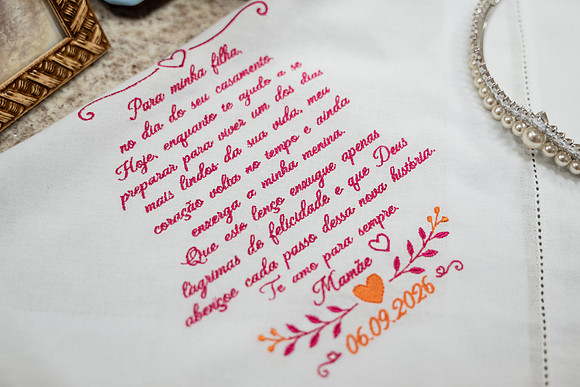 Para minha filha,
no dia do seu casamento.
Hoje, enquanto te ajudo a se
preparar para viver um dos dias
mais lindos da sua vida, meu
coração volta no tempo e ainda
enxerga a minha menina.
Que este lenço enxugue apenas
lágrimas de felicidade e que Deus
abençoe cada passo dessa nova história.
Te amo para sempre.
Mamãe
06.09.2026